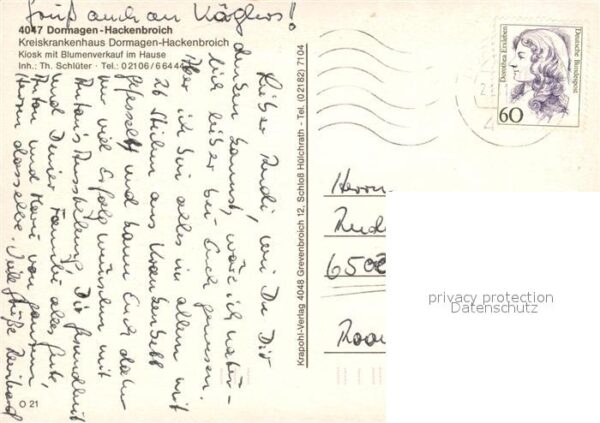 Gruß auch an Köglers!
4047 Dormagen-Hackenbroich
Kreiskrankenhaus Dormagen-Hackenbroich
Kiosk mit Blumenverkauf im Hause
Inh.: Th. Schlüter · Tel.: 02106/66444
Lieber Rudi, wie Du Dir
denken kannst, wäre ich natür-
lich lieber bei Euch gewesen.
Hier ich bin alles in allem mit
26 Stilen ans Krankenbett
gefesselt und kann Euch daher
nur viel Erfolg wünschen mit
Anton's Ausstellung. Dir Gesundheit
und Deiner Familie alles Gute,
Anton und von ganzem
Herzen dasselbe. Viele Grüße Reinhard
O 21
Krapohl-Verlag 4048 Grevenbroich 12, Schloß Hülchrath - Tel. (02182) 7104
Dorothea Erxleben
Deutsche Bundespost
60
Herrn
Rud
6500
privacy protection
Datenschutz